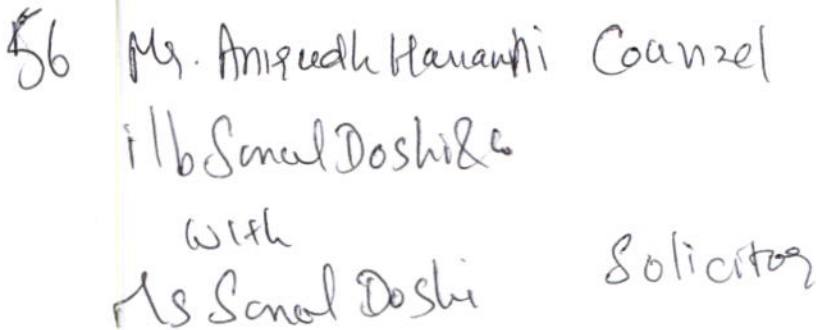 56 Mr. Anirudh Hariani Counsel
i/b Sonal Doshi & Co
with
Ms Sonal Doshi Solicitor